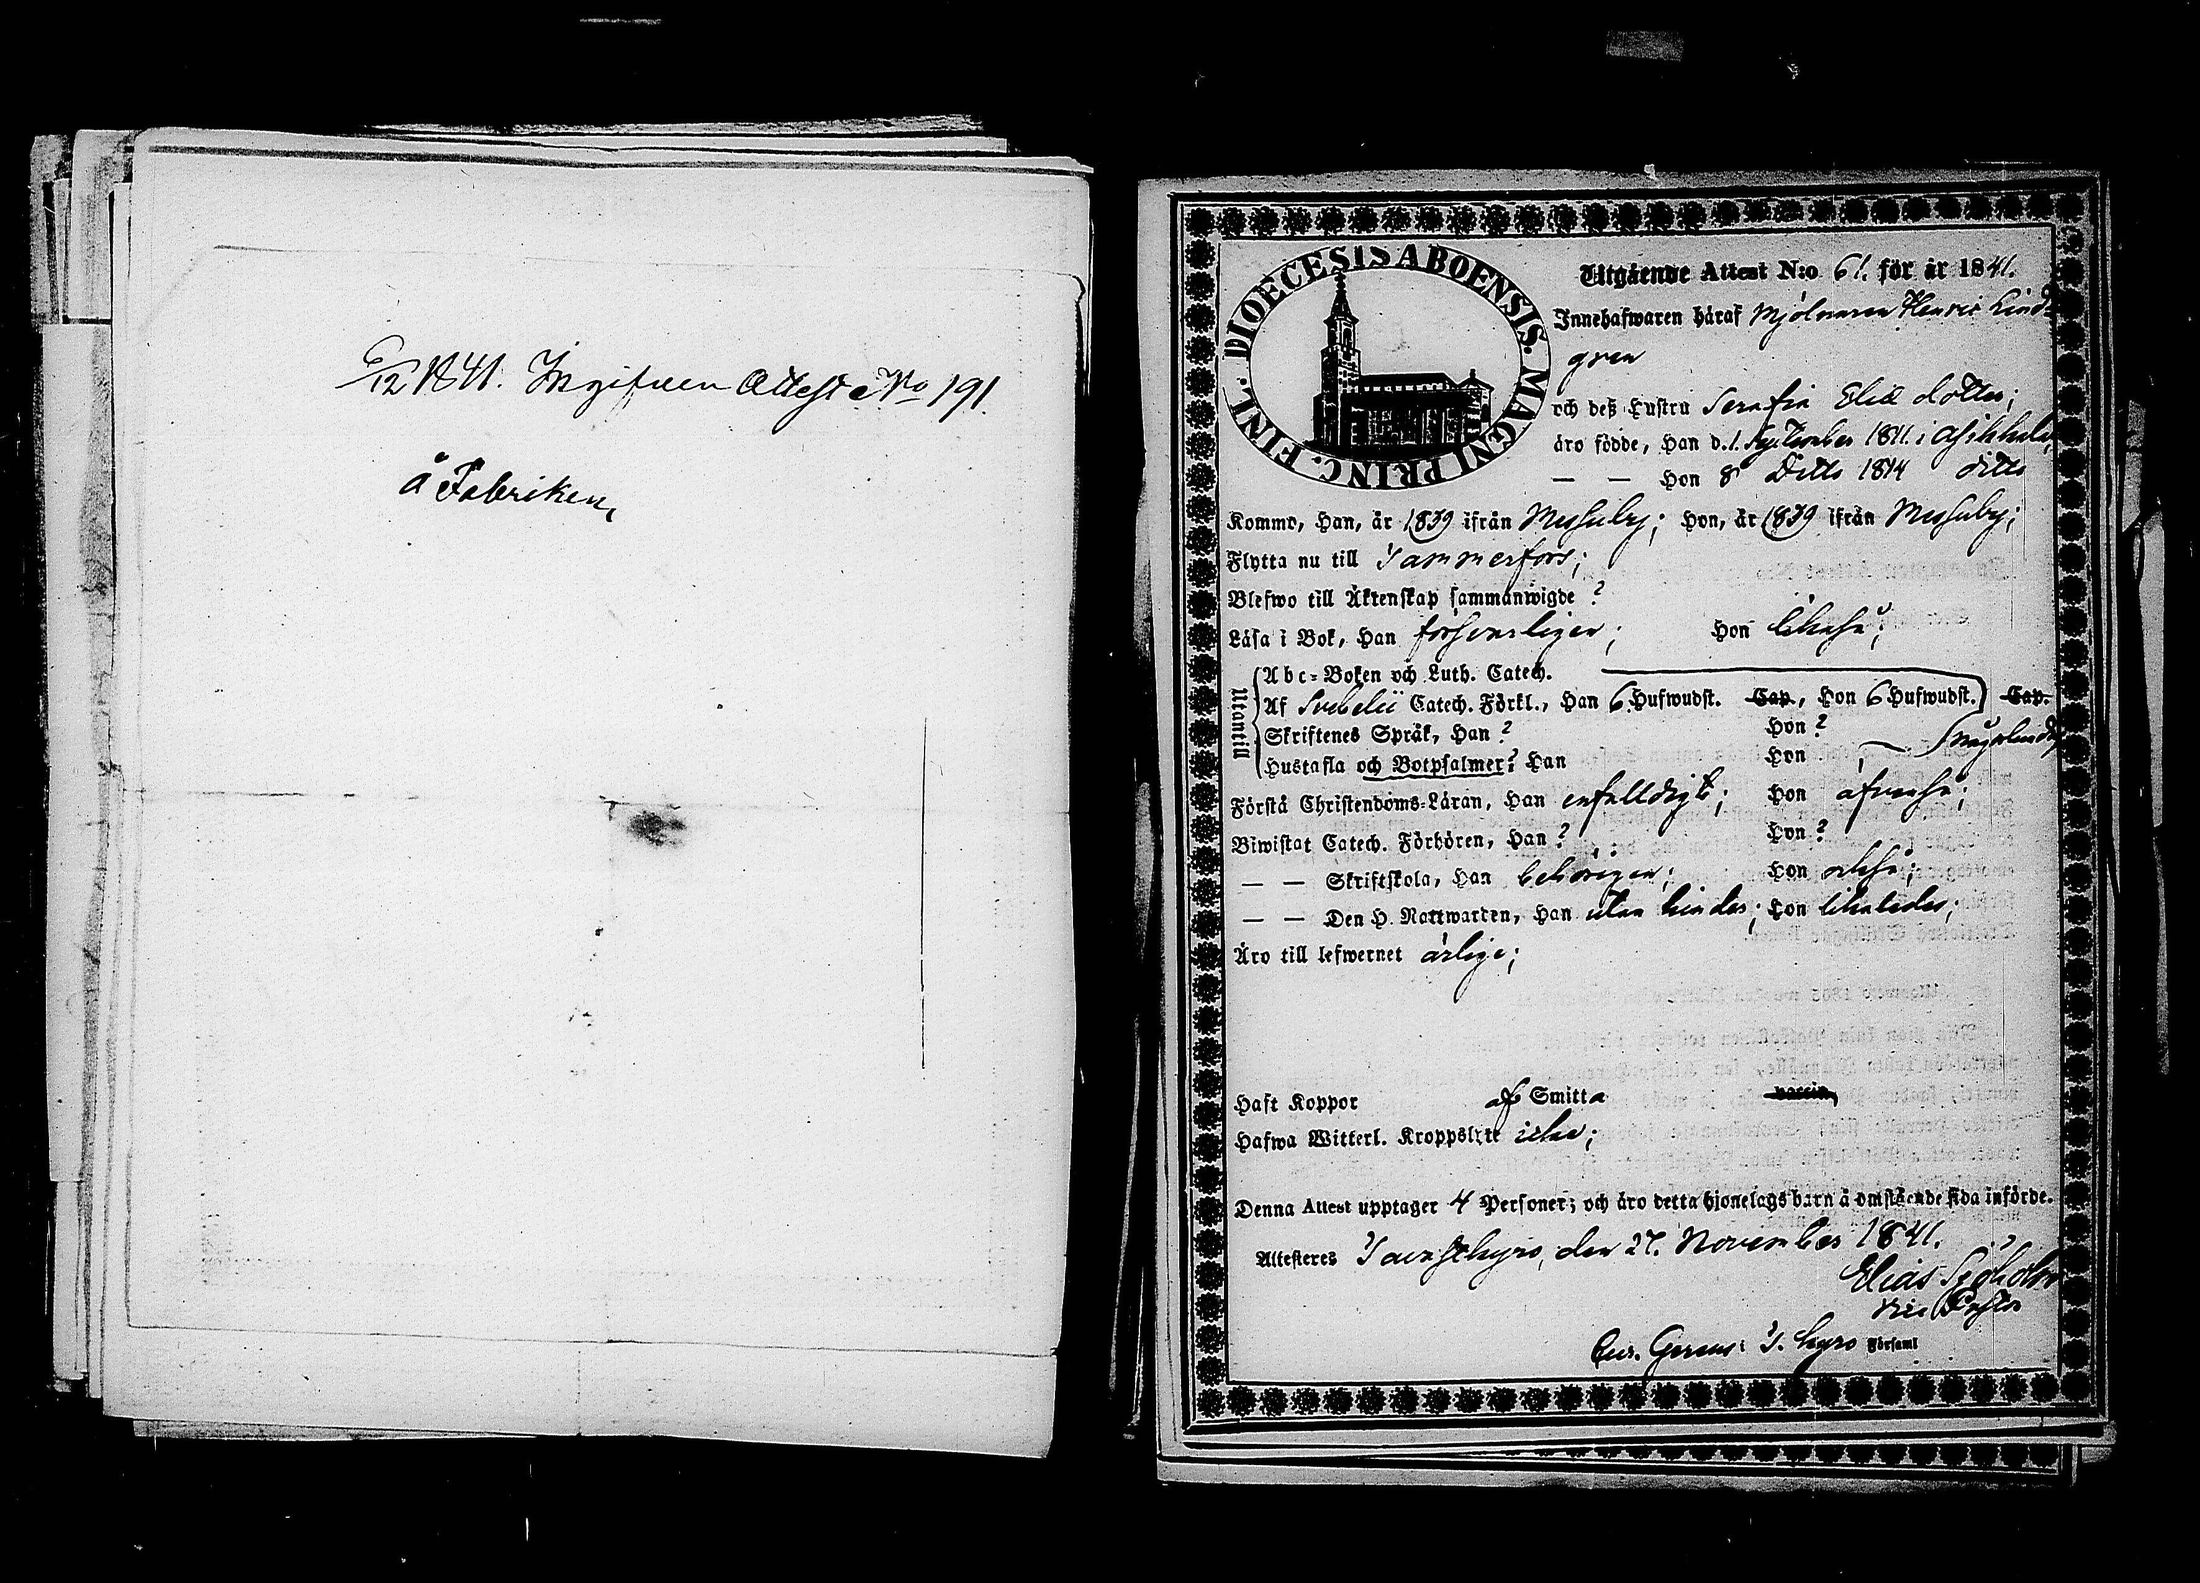 6/12 1841. Ingifven Attest No 191.
å Fabriken,
DIOECESIS ABOENSIS. MAGNI PRINC. FINL.
Utgående Attest N:o 61. för år 1841.
Innehafwaren häraf Mjölnaren Henric Lind-
gren
och deß Hustru Serafia Eliæ dotter;
äro födde, Han d. 1. September 1811. i Asikkala,
— — Hon 8 Ditto 1814 ditto
Kommo, Han, år 1839 ifrån Messuby; Hon, år 1839 ifrån Messuby;
Flytta nu till Tammerfors;
Blefwo till Äktenskap sammanwigde ?
Läsa i Bok, Han försvarligen; Hon likaså;
Utantill
Abc-Boken och Luth. Catech.
Af Svebelii Catech. Förkl., Han 6 Hufwudst. Cap., Hon 6 Hufwudst. Cap.
Skriftenes Språk, Han ? Hon ?
Hustafla och Botpsalmer? Han Hon
Förstå Christendoms-Läran, Han enfalldigt; Hon äfvenså;
Biwistat Catech. Förhören, Han ? Hon ?
— — Skriftskola, Han behörigen; Hon också;
— — Den H. Nattwarden, Han utan hinder; Hon likaledes;
Äro till lefwernet ärlige;
Haft Koppor af Smitta vaccin,
Hafwa Witterl. Kroppslyte icke;
Denna Attest upptager 4 Personer; och äro detta hjonelags barn å omstående sida införde.
Attesteres Tavastkyro, den 27. November 1841.
Elias Sjöholm
Vice Pastor
Cur. Gerens i T. kyro Församl